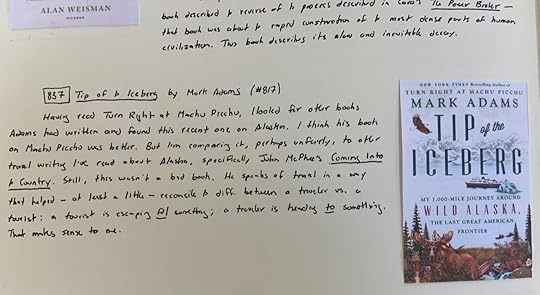 ALAN WEISMAN
PICADOR
book described t reverse of t process described in Caro's The Power Broker —
that book was about t rapid construction of t most dense parts of human
civilization. This book describes its slow and inevitable decay.
857 Tip of t Iceberg by Mark Adams (#817)
Having read Turn Right at Machu Picchu, I looked for other books
Adams had written and found this recent one on Alaska. I think his book
on Machu Picchu was better. But I'm comparing it, perhaps unfairly, to other
travel writing I've read about Alaska, specifically John McPhee's Coming Into
t Country. Still, this wasn't a bad book. He speaks of travel in a way
that helped – at least a little – reconcile t diff. between a traveler vs. a
tourist: a tourist is escaping from something; a traveler is heading to something.
That makes sense to me.
NEW YORK TIMES Bestselling Author of
TURN RIGHT AT MACHU PICCHU
MARK ADAMS
TIP
of the
ICEBERG
MY 3,000-MILE JOURNEY AROUND
WILD ALASKA,
THE LAST GREAT AMERICAN
FRONTIER